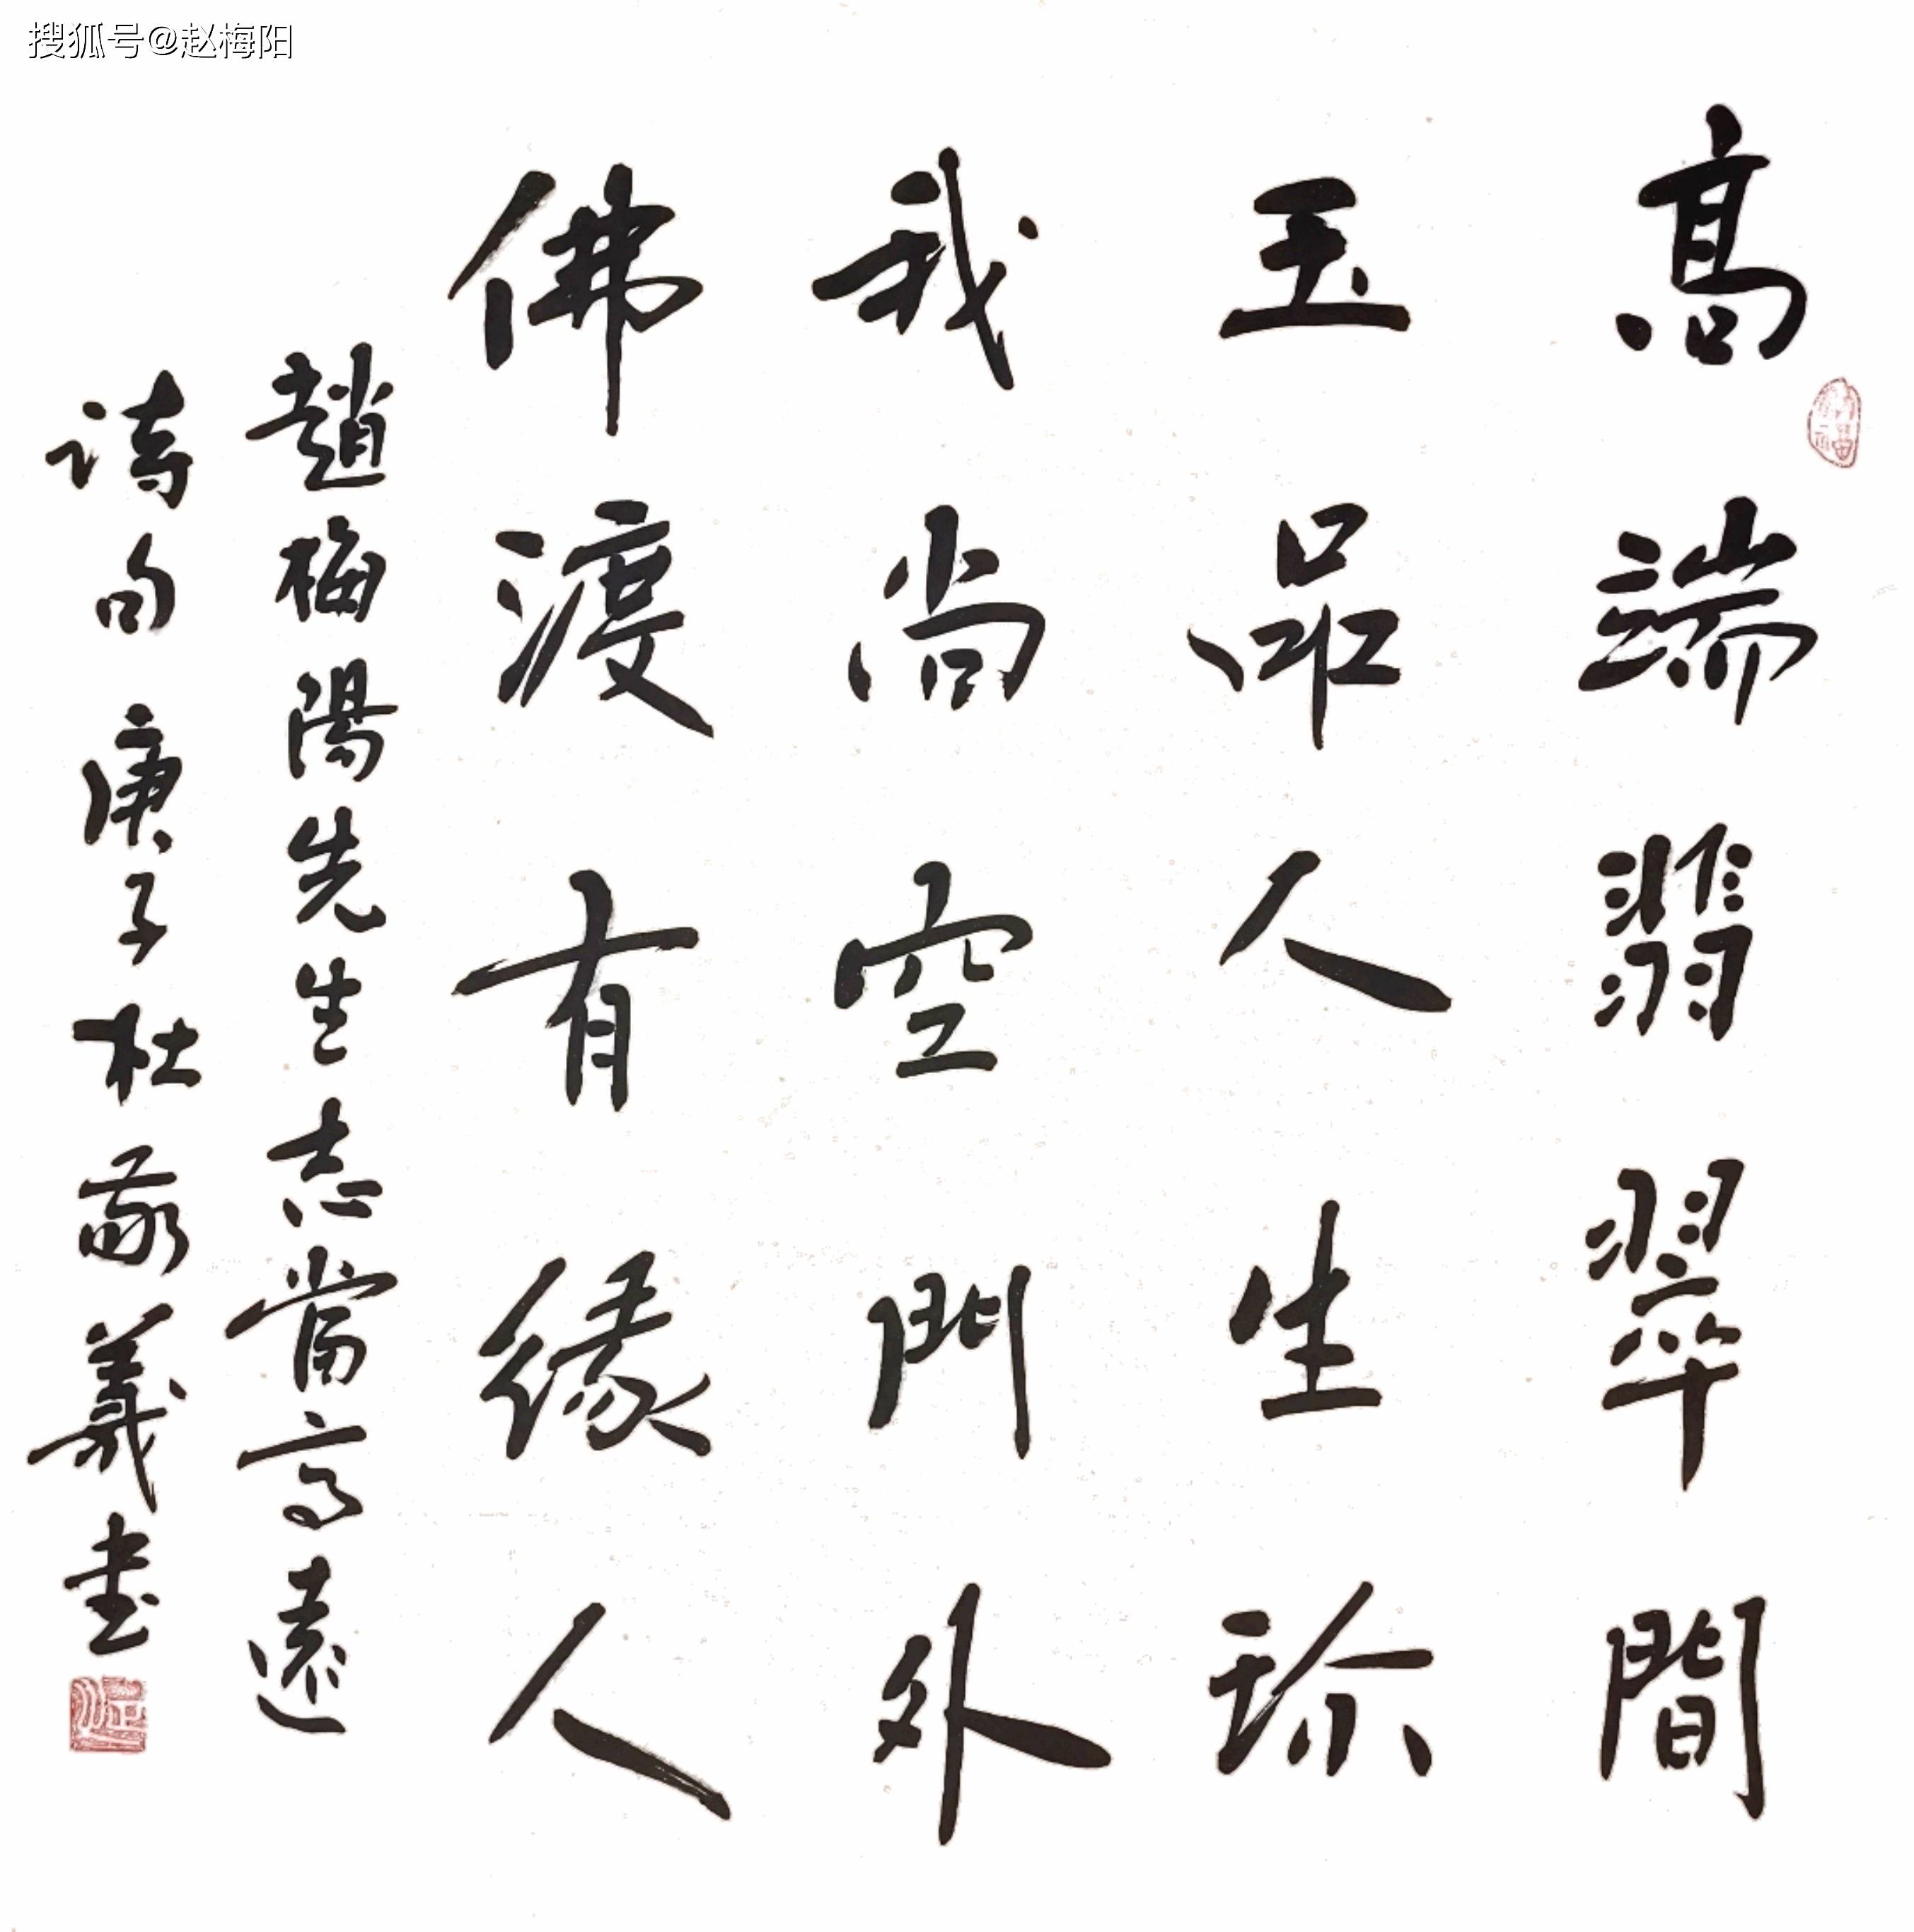 搜狐号@赵梅阳
高端翡翠間
玉品人生珎
我尚空門外
佛渡有緣人
趙梅陽先生志當高遠
詩句庚子杜敬義书